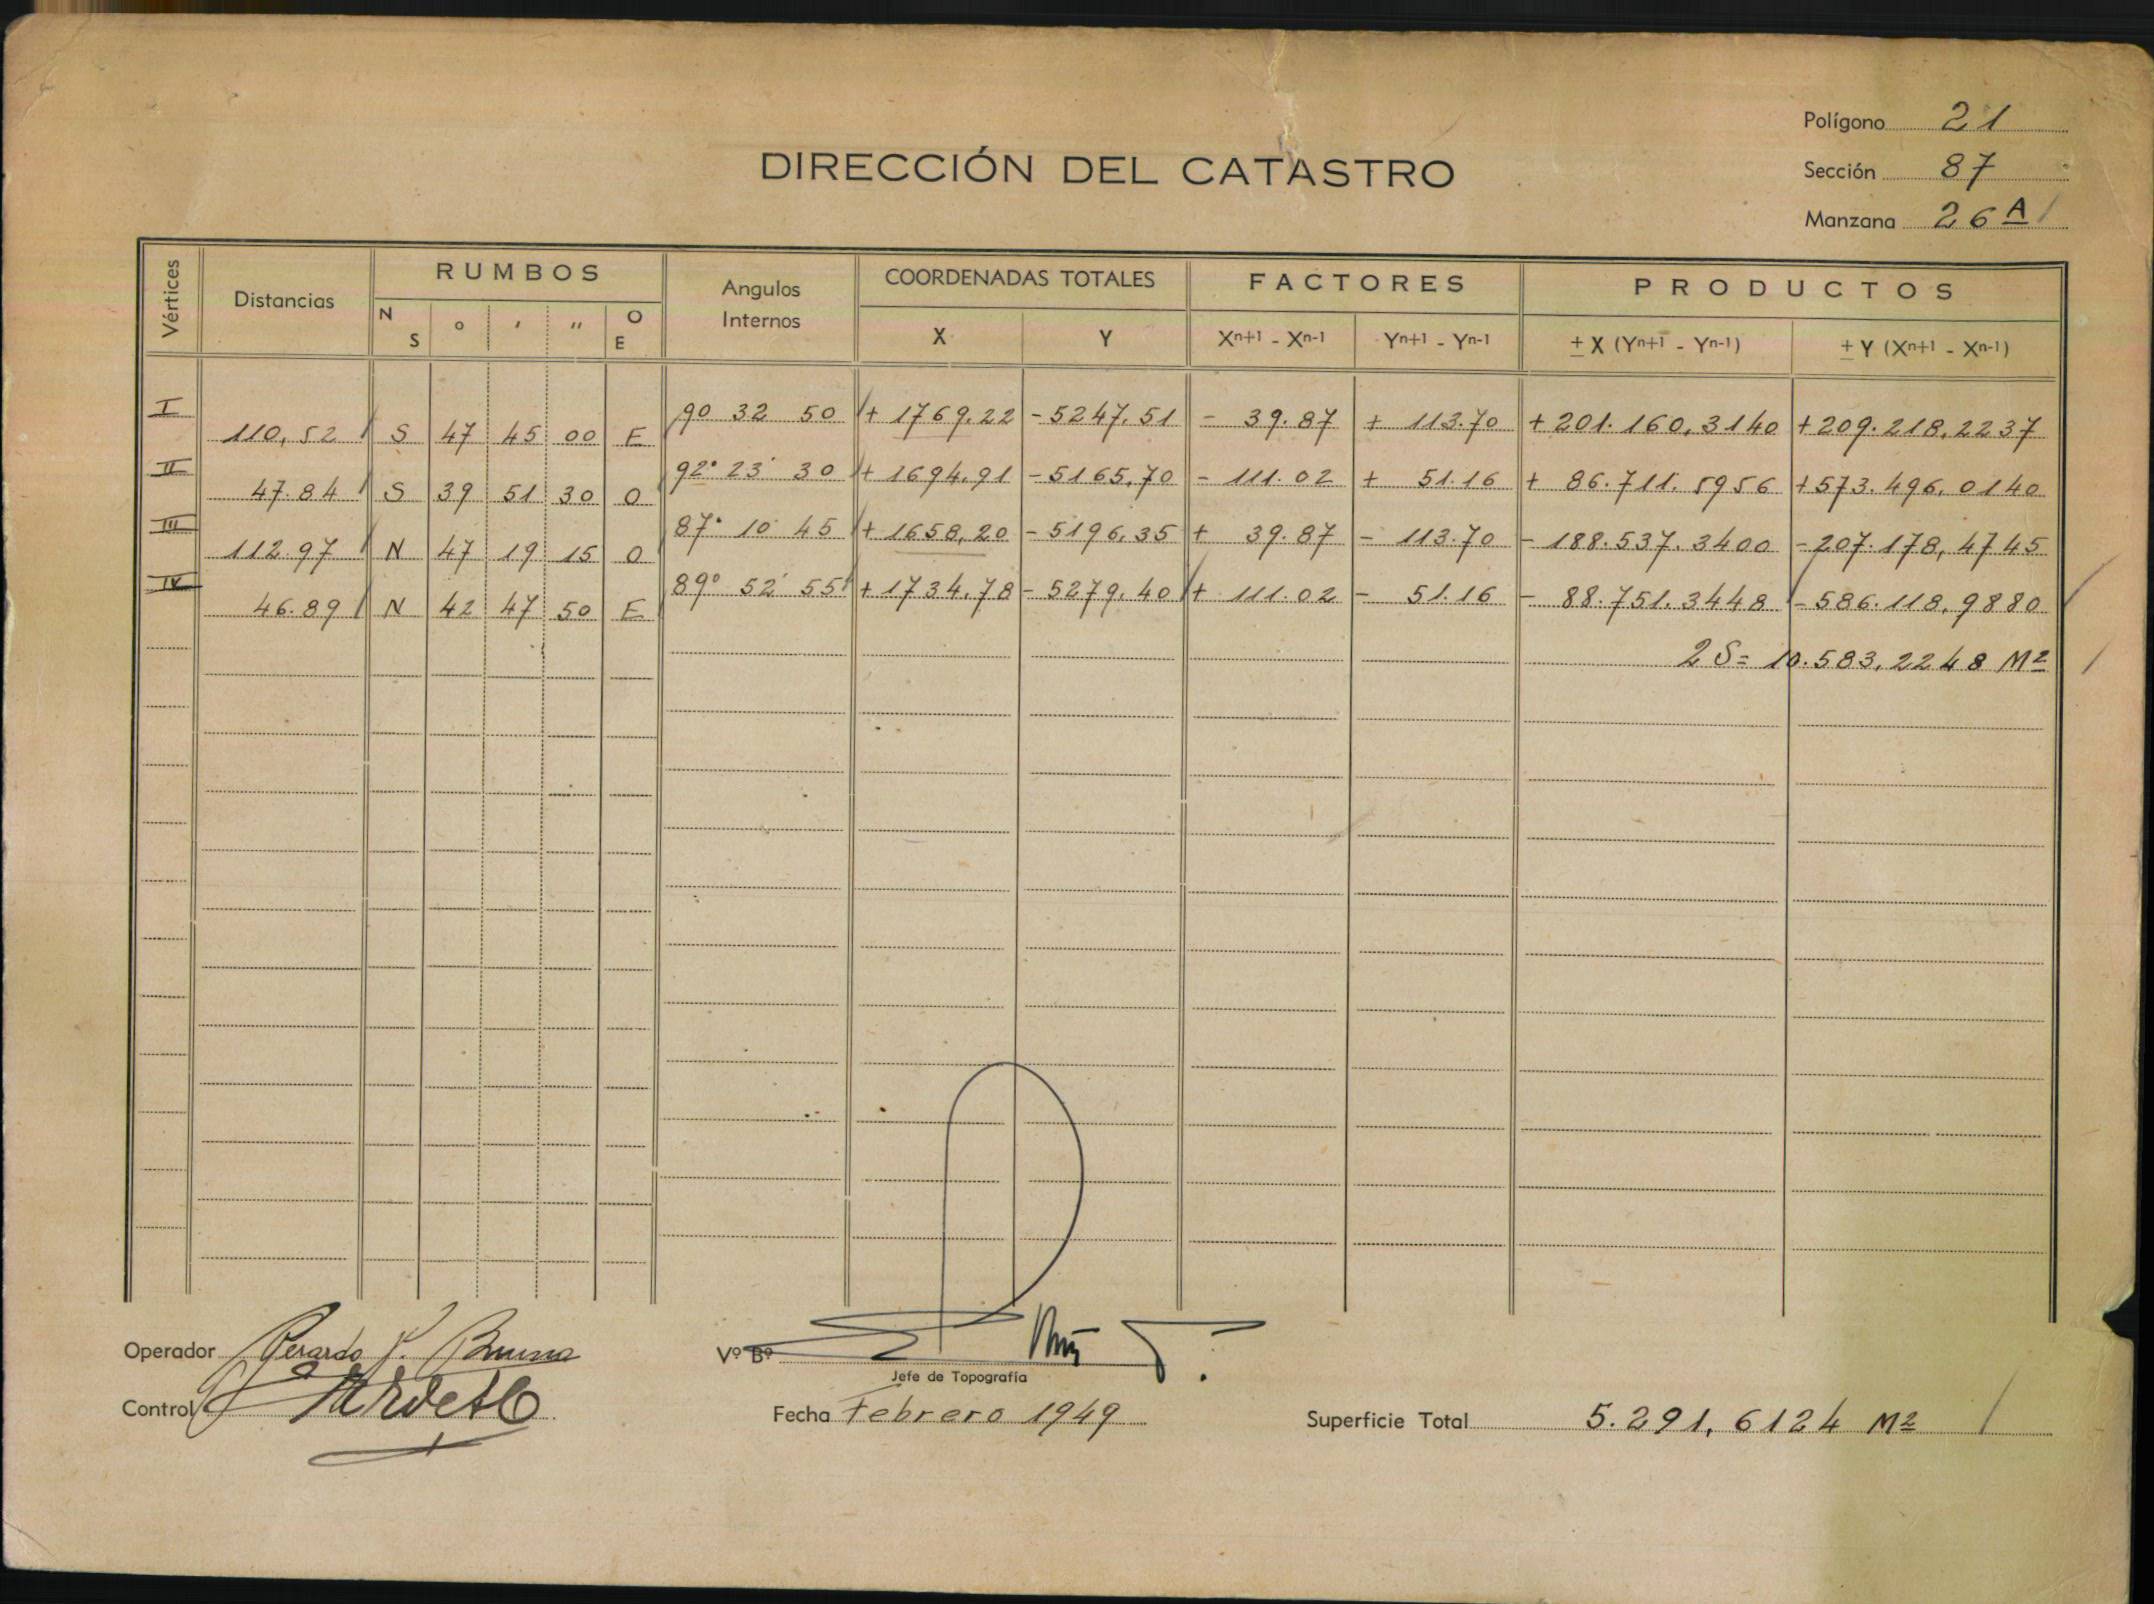 Polígono 21
DIRECCIÓN DEL CATASTRO
Sección 87
Manzana 26 A
Vértices Distancias RUMBOS Angulos Internos COORDENADAS TOTALES FACTORES PRODUCTOS
N S ° ' " O E X Y Xn+1 - Xn-1 Yn+1 - Yn-1 ± X (Yn+1 - Yn-1) ± Y (Xn+1 - Xn-1)
I 90 32 50 + 1769,22 - 5247,51 - 39.87 + 113.70 + 201.160,3140 + 209.218,2237
110,52 S 47 45 00 E
II 92° 23' 30 + 1694,91 - 5165,70 - 111.02 + 51.16 + 86.711.5956 + 573.496,0140
47.84 S 39 51 30 O
III 87° 10' 45 + 1658,20 - 5196,35 + 39.87 - 113.70 - 188.537.3400 - 207.178,4745
112.97 N 47 19 15 O
IV 89° 52' 55' + 1734,78 - 5279,40 + 111.02 - 51.16 - 88.751.3448 - 586.118,9880
46.89 N 42 47 50 E
2S = 10.583,2248 M2
Operador Gerardo
Vº Bº
Jefe de Topografía
Control
Fecha Febrero 1949
Superficie Total 5.291,6124 M2